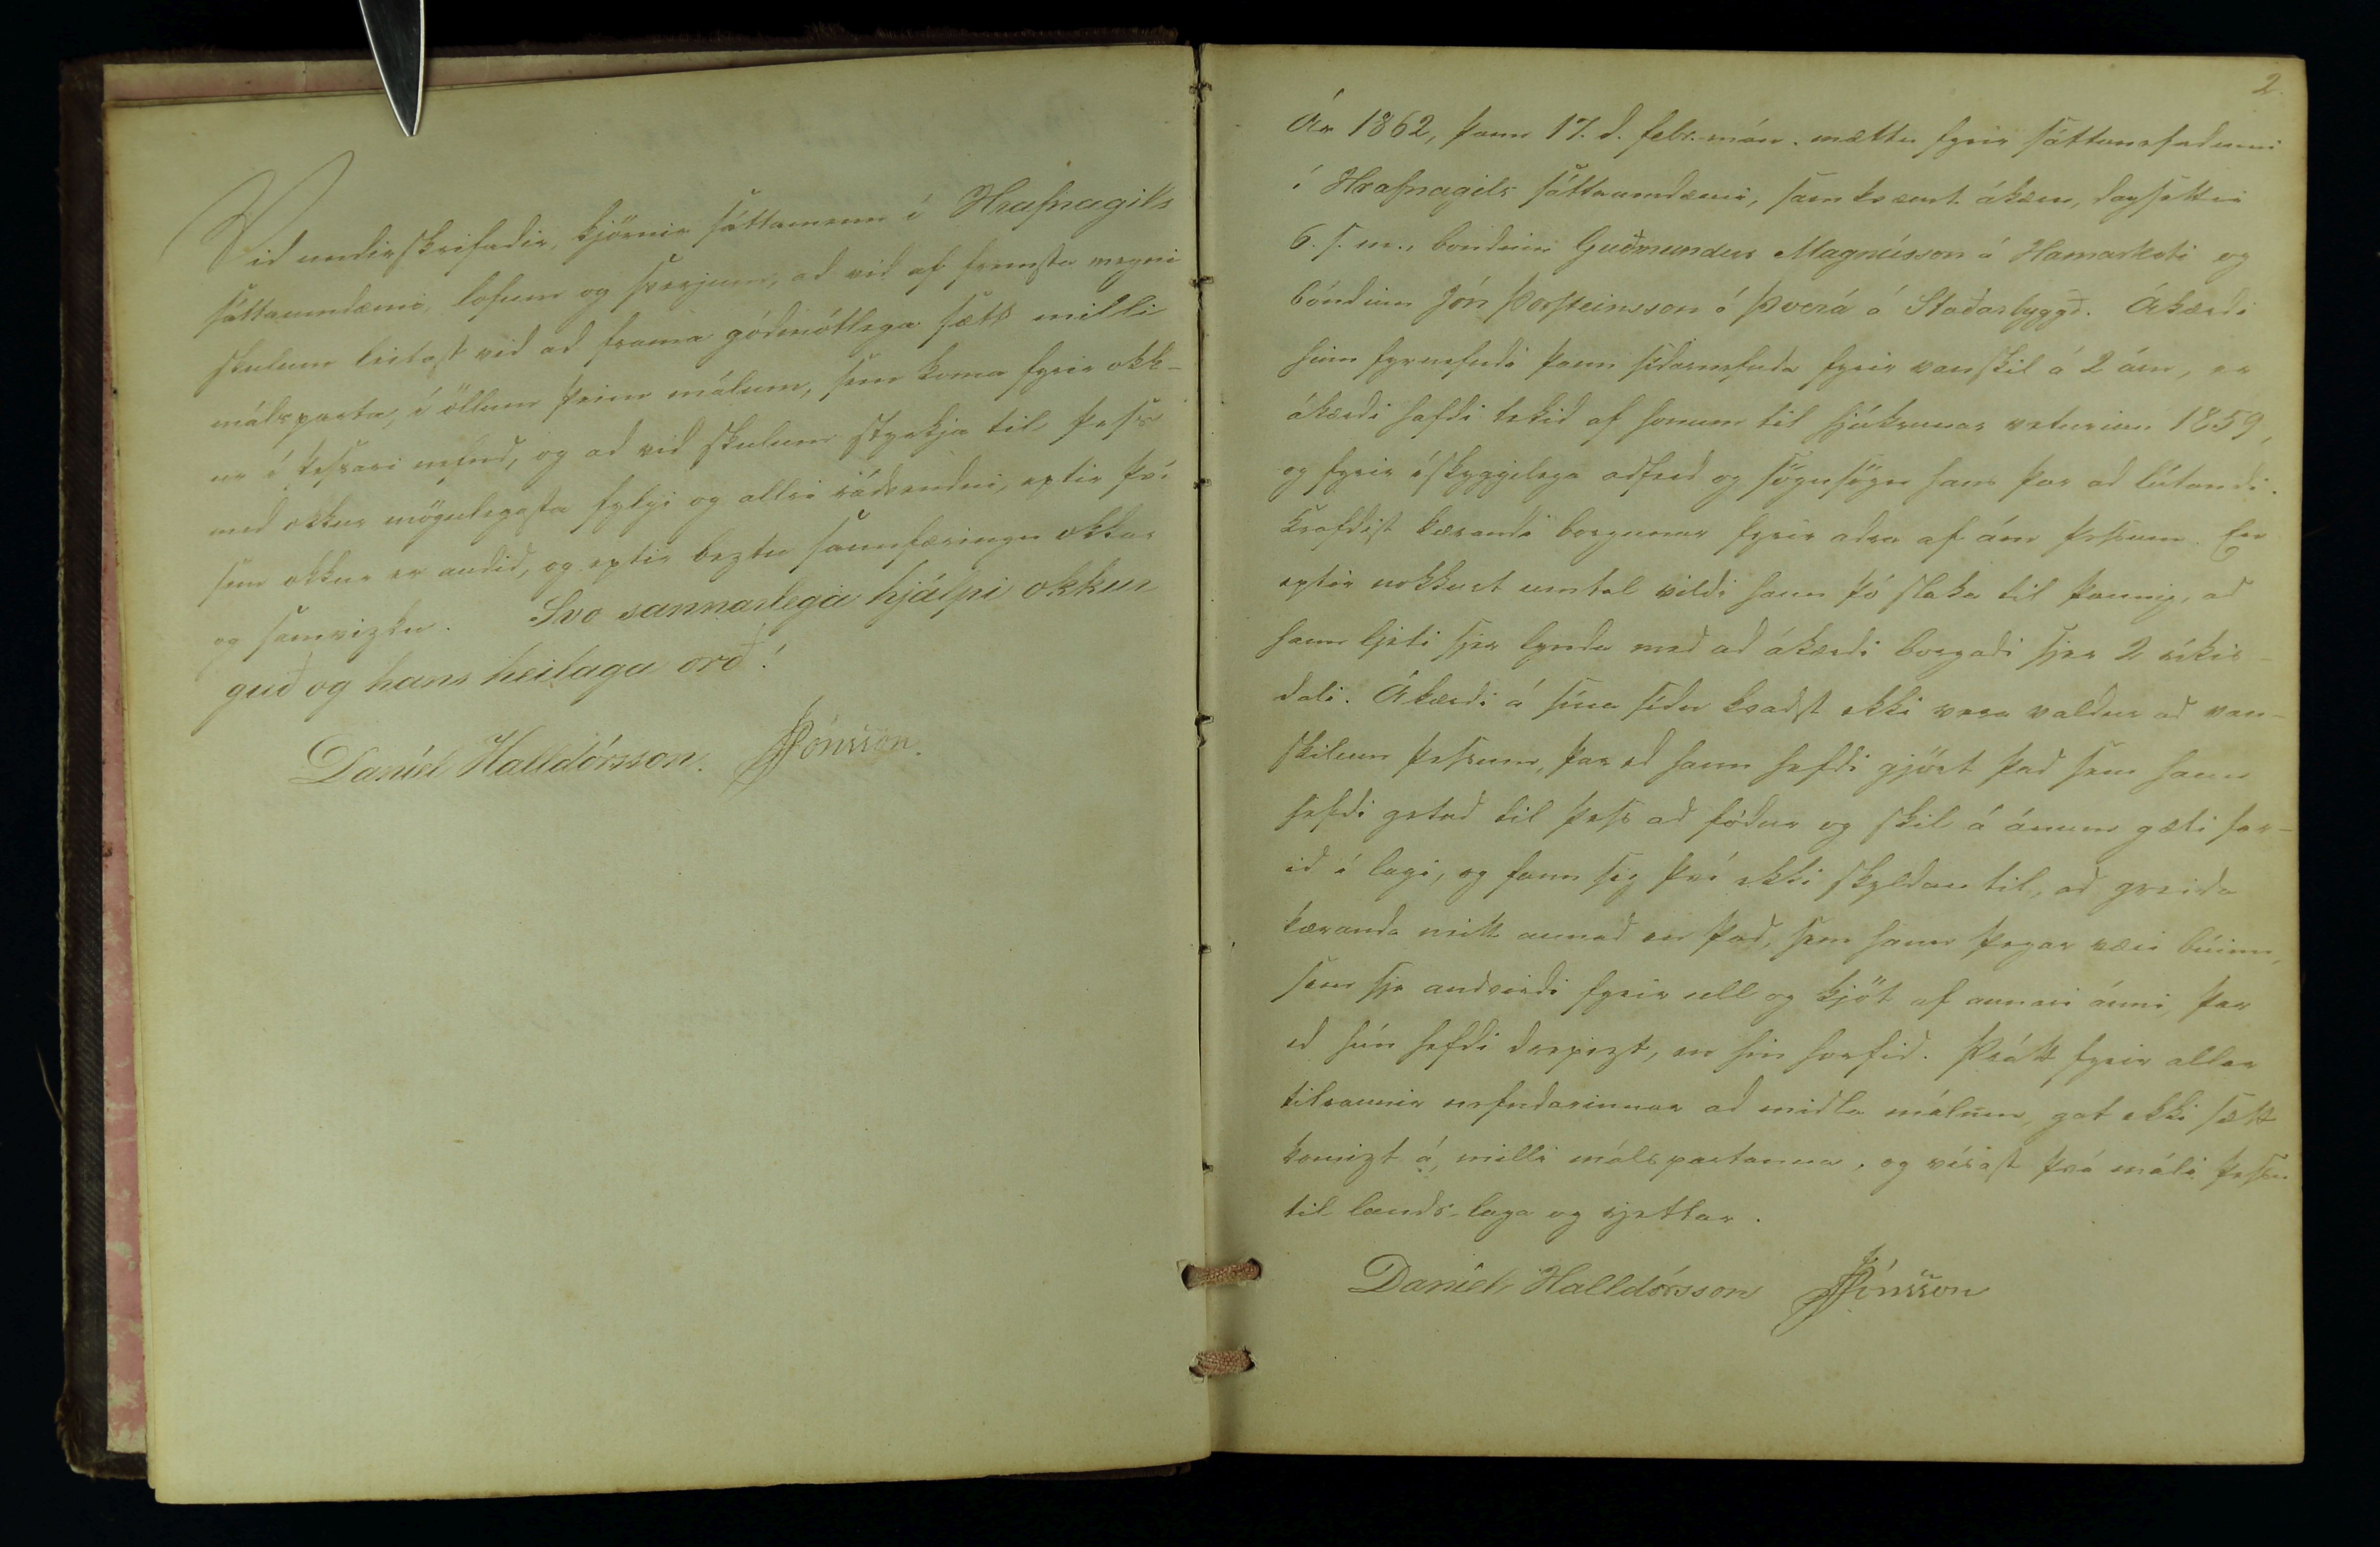 Vid undirskrifadir, kjörnir sáttamenn í Hrafnagils
sáttaumdæmi, lofum og sverjum, ad vid af fremsta megni
skulum leitast vid ad frama gódmótlega sætt milli
málsparta, í öllum þeim málum, sem koma fyrir okk-
ur í þessari nefnd, og ad vid skulum styrkja til þess
med okkur mögulegasta fylgi og allri rádvendni, eptir því
sem okkur er audid, og eptir beztu sannfæringu okkar
og samvizku. Svo sannarlega hjálpi okkur
guð og hans heilaga orð!
Daníel Halldórsson. JJónsson.
2.
Ár 1862, þann 17. d. febr. mán. mættu fyrir sáttanefndinni
í Hrafnagils sáttaumdæmi, samkvæmt ákæru, dagsettri
6. s. m., bóndinn Guðmundur Magnússon á Hamarkoti og
bóndinn Jón Þorsteinsson á Þverá á Staðarbyggð. Ákærdi
hinn fyrnefndi þann sídarnefnda fyrir vanskil á 2 ám, er
ákærdi hafdi tekid af honum til hjúkrunar veturinn 1859,
og fyrir óskyggilega adferd og sögusögn hans þar ad lútandi.
Krafdist kærandi borgunar fyrir adra af ám þessum. En
eptir nokkurt umtal vildi hann þó slaka til þannig, ad
hann ljeti sjer lynda med ad ákærdi borgadi sjer 2 ríkis-
dali. Ákærdi á sína sídu kvadst ekki vera valdur ad van-
skilum þessum, þar ed hann hefdi gjört þad sem hann
hefdi getad til þess ad fódur og skil á ánum gæti far-
id í lagi, og fann sig því ekki skyldan til, ad greida
kæranda neitt annad en þad, sem hann þegar væri búinn,
sem sje andvirdi fyrir ull og kjöt af annari ánni, þar
ed hún hefdi drepizt, en hin horfid. Þrátt fyrir allar
tilraunir nefndarinnar ad midla málum, gat ekki sætt
komizt á, milli málspartanna, og vísast því máli þessu
til lands-laga og rjettar.
Daníel Halldórsson JJónsson